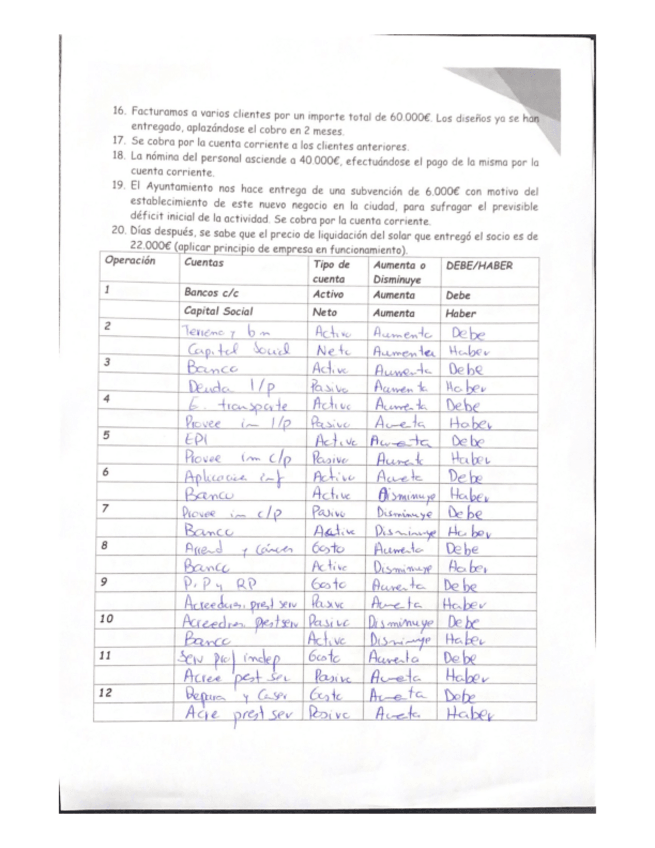 16. Facturamos a varios clientes por un importe total de 60.000€. Los diseños ya se han
entregado, aplazándose el cobro en 2 meses.
17. Se cobra por la cuenta corriente a los clientes anteriores.
18. La nómina del personal asciende a 40.000€, efectuándose el pago de la misma por la
cuenta corriente.
19. El Ayuntamiento nos hace entrega de una subvención de 6.000€ con motivo del
establecimiento de este nuevo negocio en la ciudad, para sufragar el previsible
déficit inicial de la actividad. Se cobra por la cuenta corriente.
20. Días después, se sabe que el precio de liquidación del solar que entregó el socio es de
22.000€ (aplicar principio de empresa en funcionamiento).
Operación Cuentas Tipo de cuenta Aumenta o Disminuye DEBE/HABER
1 Bancos c/c Activo Aumenta Debe
Capital Social Neto Aumenta Haber
2 Terreno y bn Activo Aumenta Debe
Capital Social Neto Aumenta Haber
3 Banco Activo Aumenta Debe
Deuda l/p Pasivo Aumenta Haber
4 E. transporte Activo Aumenta Debe
Provee im l/p Pasivo Aumeta Haber
5 EPI Activo Aumeta Debe
Provee im c/p Pasivo Aumeta Haber
6 Aplicacion inf Activo Aumeta Debe
Banco Activo Disminuye Haber
7 Provee im c/p Pasivo Disminuye Debe
Banco Activo Disminuye Haber
8 Arrend y cánon Gasto Aumenta Debe
Banco Activo Disminuye Haber
9 P, P y RP Gasto Aumenta Debe
Acreedores prest serv Pasivo Aumeta Haber
10 Acreedores prest serv Pasivo Disminuye Debe
Banco Activo Disminuye Haber
11 Serv prof indep Gasto Aumenta Debe
Acree pest ser Pasivo Aumeta Haber
12 Repara y Caser Gasto Aumeta Debe
Acre prest ser Pasivo Aumeta Haber